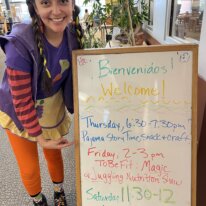 Bienvenidos!
Welcome!
Thursday, 6:30-7:30pm
Pajama Story Time, Snack + Craft
Friday, 2-3pm
ToBeFit: Magic
or Juggling Nutrition Show
Saturday 11:30-12